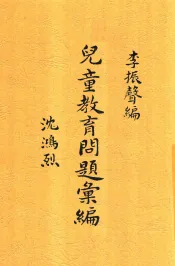 李振聲編
兒童教育問題彙編
沈鴻烈